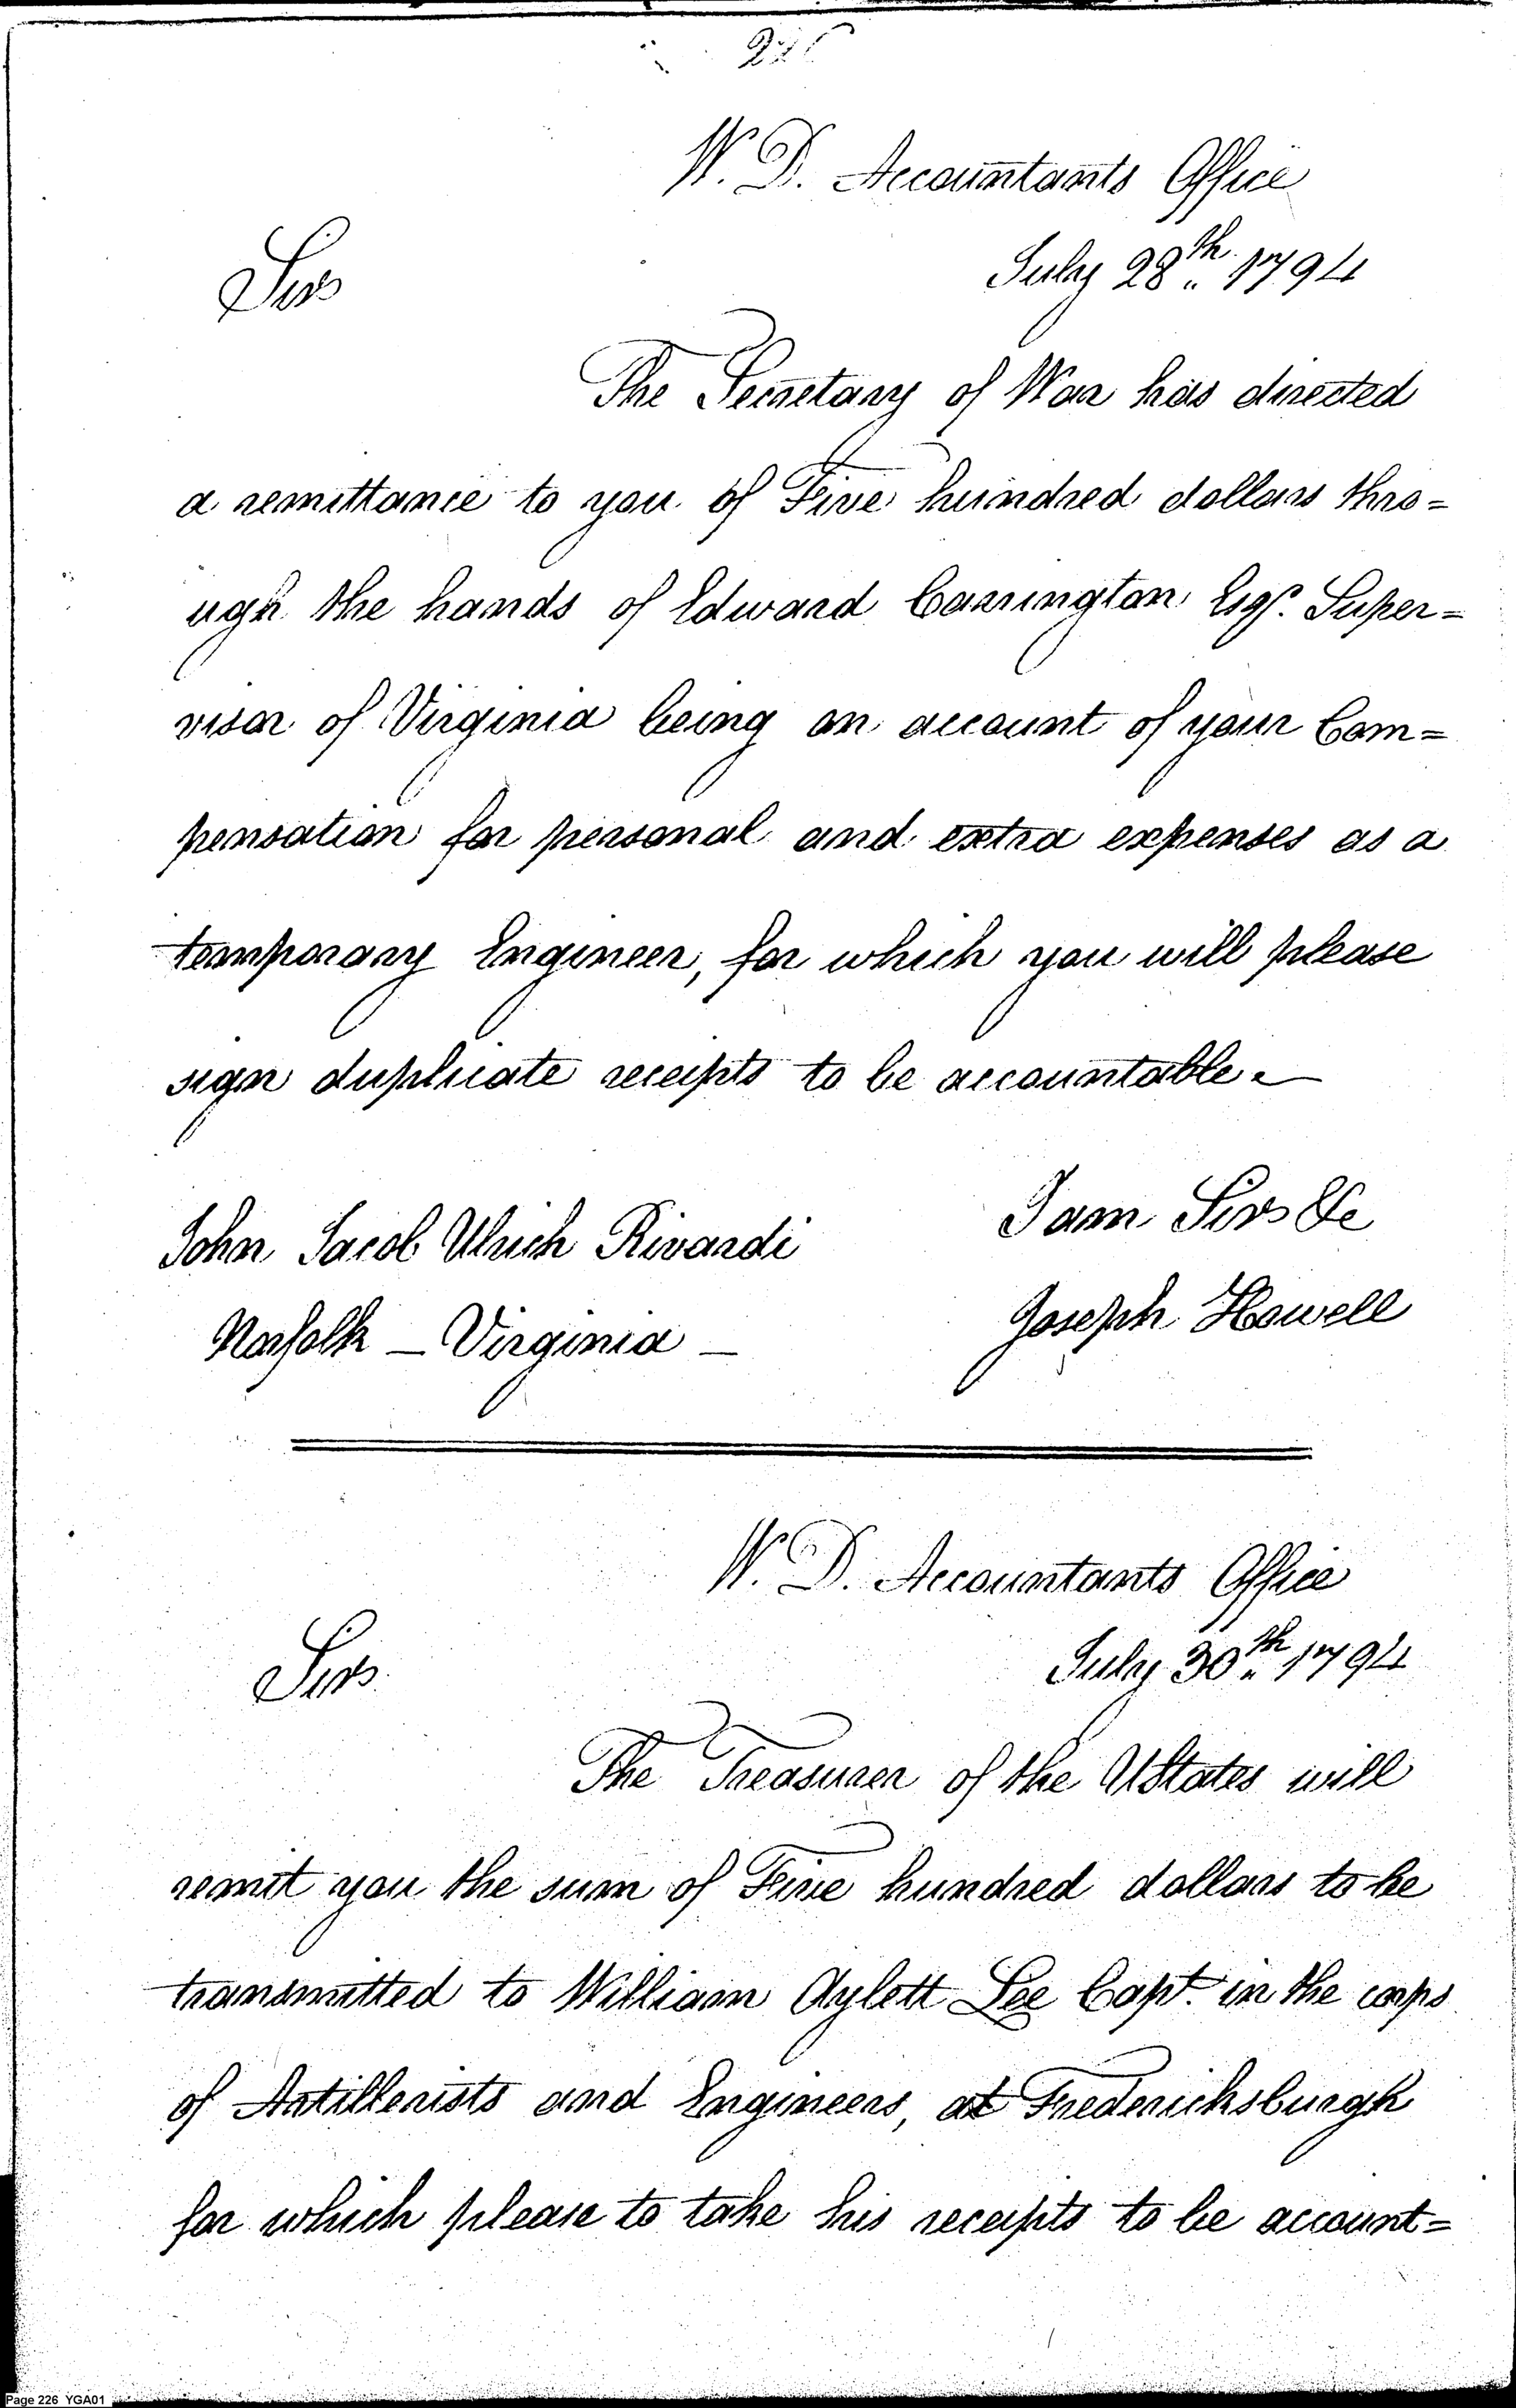 226
W. D. Accountants Office
July 28th 1794
Sir
The Secretary of War has directed
a remittance to you of Five hundred dollars thro=
ugh the hands of Edward Carrington Esqr. Super=
visor of Virginia being on account of your Com=
pensation for personal and extra expenses as a
temporary Engineer, for which you will please
sign duplicate receipts to be accountable.
I am Sir &c
John Jacob Ulrich Rivardi
Joseph Howell
Norfolk — Virginia —
W. D. Accountants Office
July 30th 1794
Sir
The Treasurer of the UStates will
remit you the sum of Five hundred dollars to be
transmitted to William Aylett Lee Capt. in the corps
of Artillerists and Engineers, at Fredericksburgh
for which please to take his receipts to be account=
Page 226 YGA01